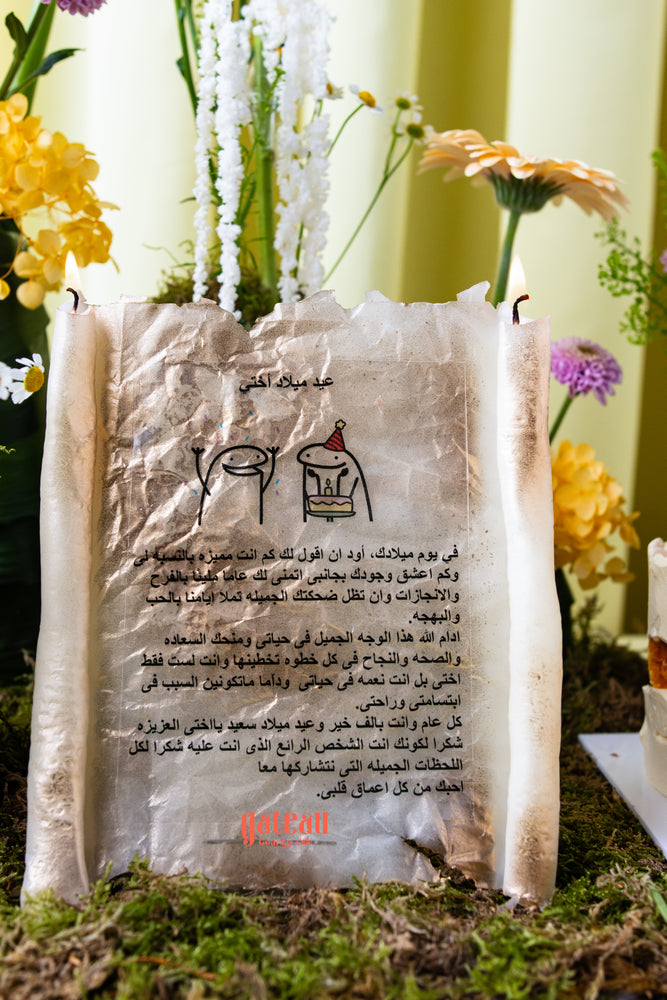 عيد ميلاد أختي
في يوم ميلادك، أود ان اقول لك كم انت مميزه بالنسبه لي
وكم اعشق وجودك بجانبي اتمنى لك عاما مليئا بالفرح
والانجازات وان تظل ضحكتك الجميله تملا ايامنا بالحب
والبهجه.
ادام الله هذا الوجه الجميل في حياتي ومنحك السعاده
والصحه والنجاح في كل خطوه تخطينها وانت لست فقط
اختي بل انت نعمه في حياتي ودأما ماتكونين السبب في
ابتسامتي وراحتي.
كل عام وانت بالف خير وعيد ميلاد سعيد يااختي العزيزه
شكرا لكونك انت الشخص الرائع الذي انت عليه شكرا لكل
اللحظات الجميله التي نتشاركها معا
احبك من كل اعماق قلبي.
gateau